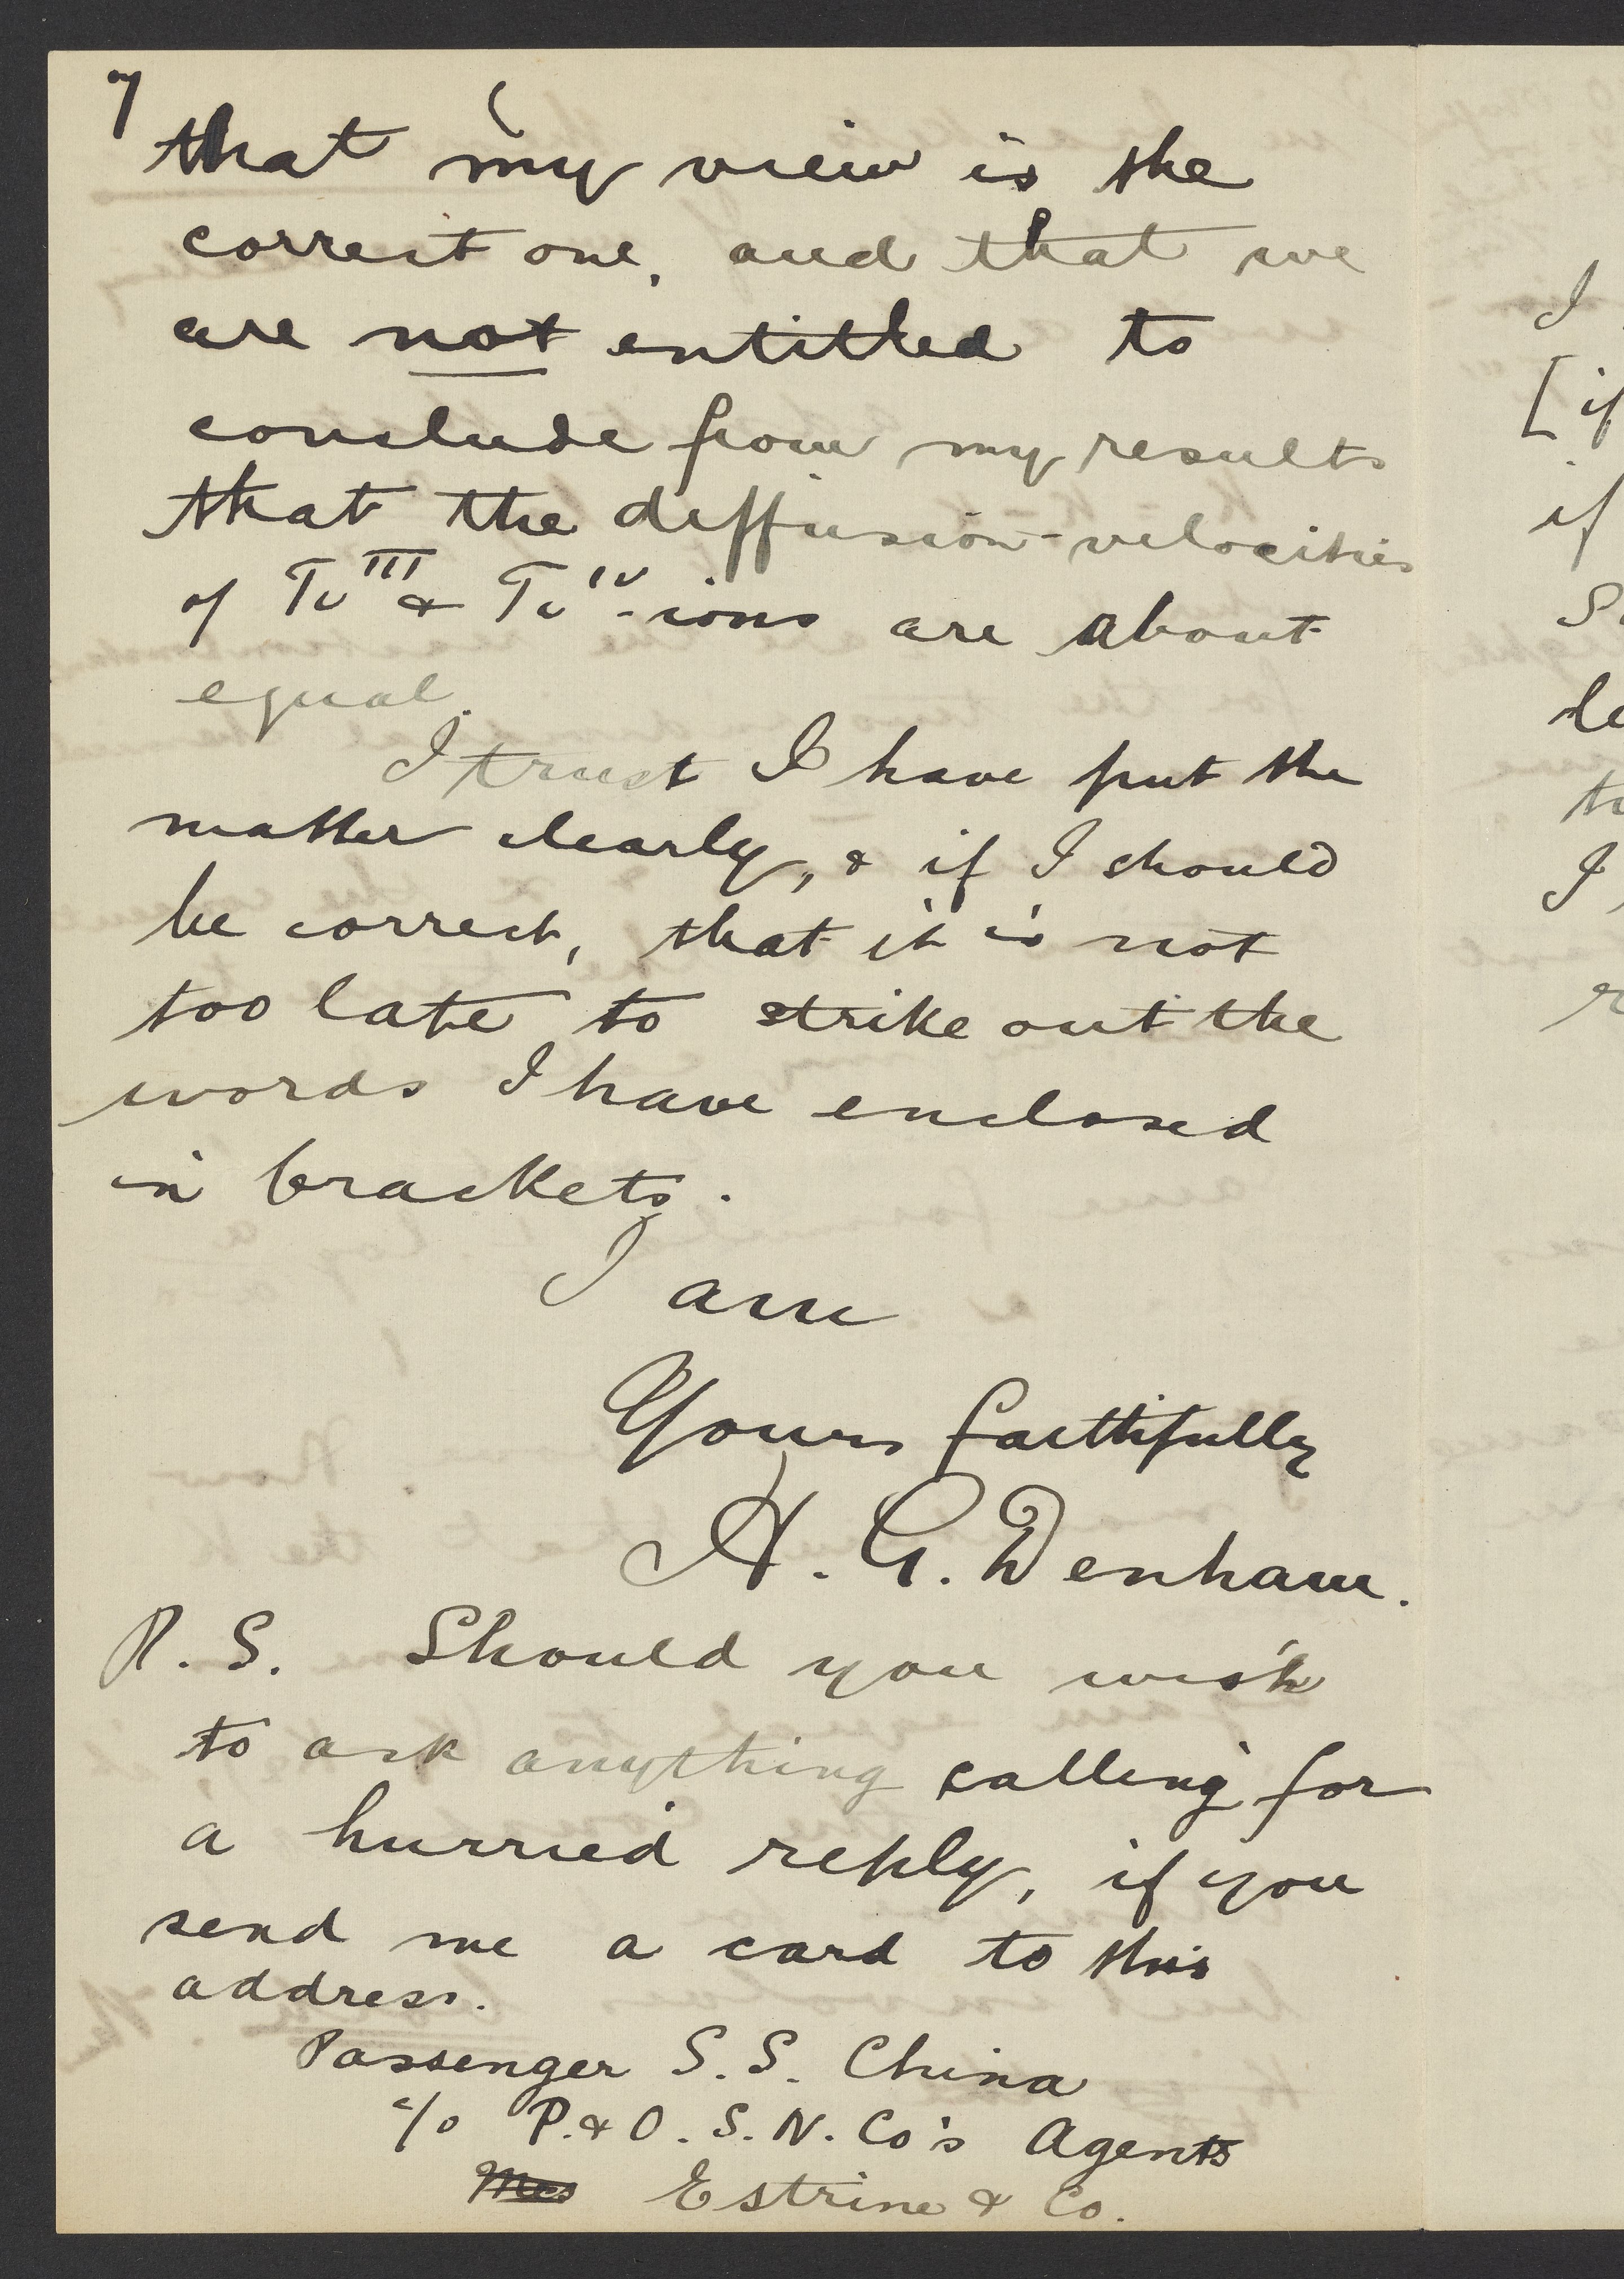 7
that my view is the
correct one, and that we
are not entitled to
conclude from my results
that the diffusion-velocities
of Ti III & Ti IV-ions are about
equal.
I trust I have put the
matter clearly, & if I should
be correct, that it is not
too late to strike out the
words I have enclosed
in brackets.
I am
Yours faithfully
H. G. Denham.
P.S. Should you wish
to ask anything calling for
a hurried reply, if you
send me a card to this
address.
Passenger S.S. China
c/o P. & O. S. N. Co's Agents
Estrine & Co.
I
[if
if
I